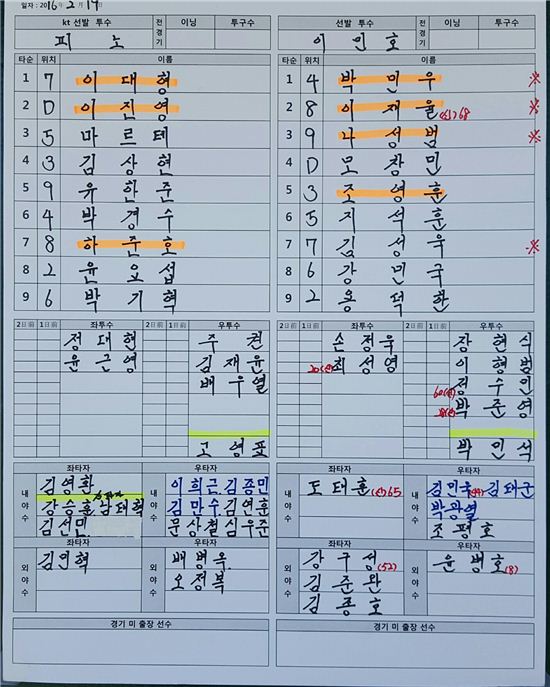 일자 : 2016년 2월 19일
kt 선발 투수 전경기 이닝 투구수
피노
타순 위치 이름
1 7 이대형
2 D 이진영
3 5 마르테
4 3 김상현
5 9 유한준
6 4 박경수
7 8 하준호
8 2 윤요섭
9 6 박기혁
2일前 1일前 좌투수 2일前 1일前 우투수
정대현 주권
윤근영 김재윤
배우열
고영표
좌타자 우타자
내야수 김영환 내야수 이희근 김종민
강승훈 남태혁 김만수 김연훈
김선민 문상철 심우준
좌타자 우타자
외야수 김민혁 외야수 배병옥
오정복
경기 미 출장 선수
선발 투수 전경기 이닝 투구수
이민호
타순 위치 이름
1 4 박민우 ※
2 8 이재율 68 ※
3 9 나성범 ※
4 D 모창민
5 3 조영훈
6 5 지석훈
7 7 김성욱 ※
8 6 강민국
9 2 용덕한
2일前 1일前 좌투수 2일前 1일前 우투수
손정욱 장현식
최성영 이형범
정수민
박준영
박민석
좌타자 우타자
내야수 도태훈 65 내야수 김민욱(44) 김태군
박광열
조평호
좌타자 우타자
외야수 강구성(52) 외야수 윤병호(8)
김준완
김종호
경기 미 출장 선수